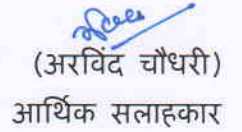 (अरविंद चौधरी)
आर्थिक सलाहकार